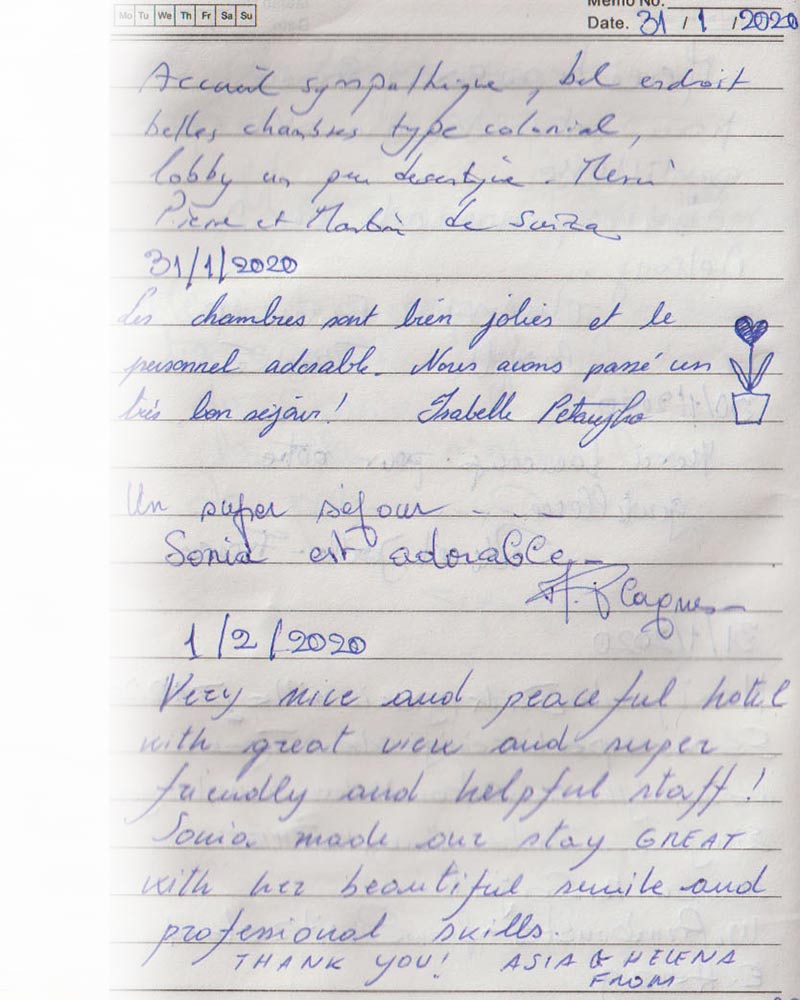 Mo Tu We Th Fr Sa Su
Memo No.
Date. 31 / 1 / 2020
Accueil sympathique, bel endroit
belles chambres type colonial,
lobby un peu desertique. Merci
Pierre et Martin de Suiza
31/1/2020
Les chambres sont bien jolies et le
personnel adorable. Nous avons passé un
très bon séjour! Isabelle
Un super séjour - - -
Sonia est adorable -
1/2/2020
Very nice and peaceful hotel
with great view and super
friendly and helpful staff!
Sonia made our stay GREAT
with her beautiful smile and
professional skills.
THANK YOU! ASIA & HELENA
FROM